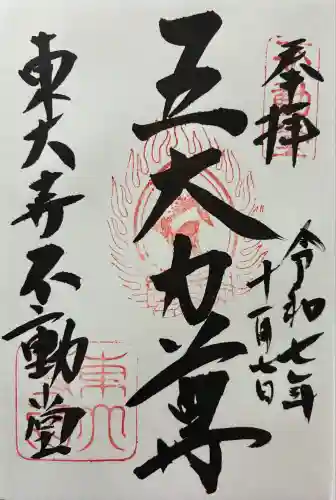 奉拝
令和七年
十一月七日
五大力尊
東大寺不動堂